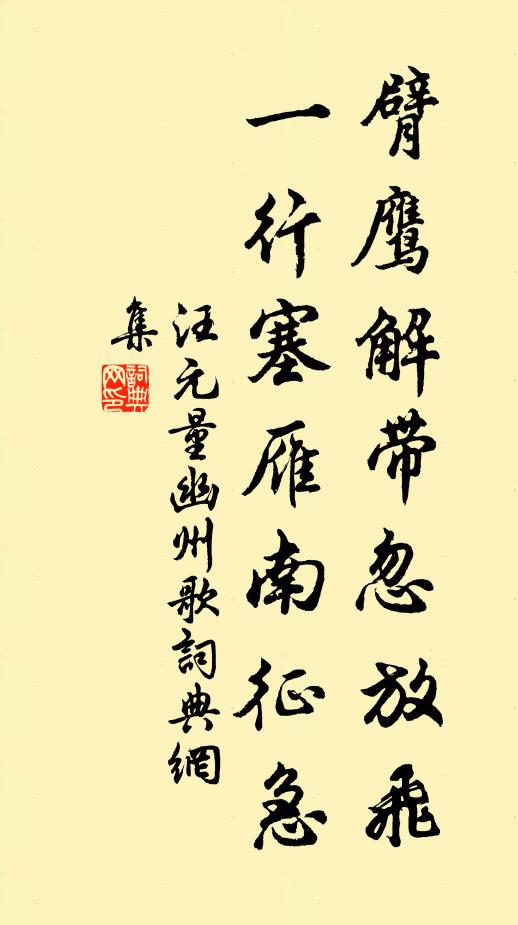 臂鹰解带忽放飛
一行塞雁南征急
汪元量幽州歌詞典網
集
詞典
网印